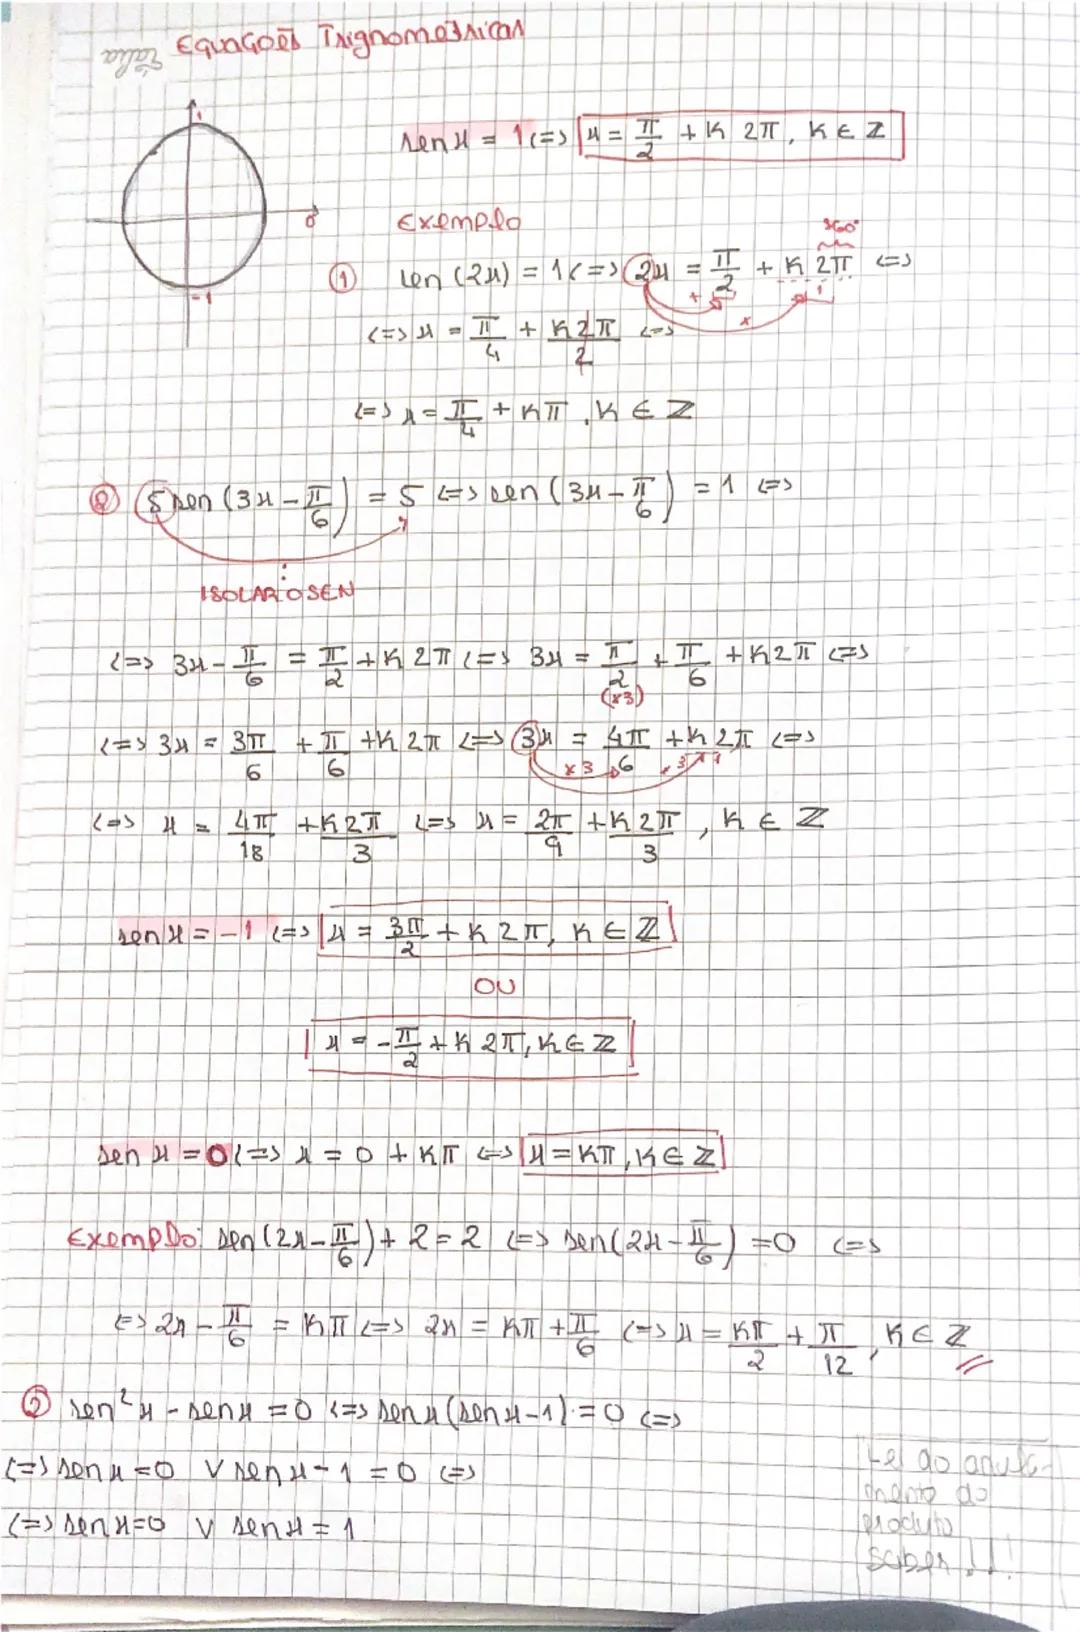 Equações Trignometricas
1
0
-1
sen x = 1 <=> x = π/2 + K 2π, K ∈ Z
Exemplo
360°
① sen (2x) = 1 <=> 2x = π/2 + K 2π <=>
<=> x = π/4 + K2π/2 <=>
<=> x = π/4 + Kπ, K ∈ Z
② 5 sen (3x - π/6) = 5 <=> sen (3x - π/6) = 1 <=>
ISOLAR O SEN
<=> 3x - π/6 = π/2 + K 2π <=> 3x = π/2 + π/6 + K2π <=>
(x3)
<=> 3x = 3π/6 + π/6 + K 2π <=> 3x = 4π/6 + K 2π <=>
x3
<=> x = 4π/18 + K2π/3 <=> x = 2π/9 + K 2π/3, K ∈ Z
sen x = -1 <=> x = 3π/2 + K 2π, K ∈ Z
OU
x = -π/2 + K 2π, K ∈ Z
sen x = 0 <=> x = 0 + Kπ <=> x = Kπ, K ∈ Z
Exemplo: sen (2x - π/6) + 2 = 2 <=> sen (2x - π/6) = 0 <=>
<=> 2x - π/6 = Kπ <=> 2x = Kπ + π/6 <=> x = Kπ/2 + π/12, K ∈ Z
② sen² x - sen x = 0 <=> sen x (sen x - 1) = 0 <=>
<=> sen x = 0 V sen x - 1 = 0 <=>
<=> sen x = 0 V sen x = 1
Lei do anula-
mento do
produto
saber !!!